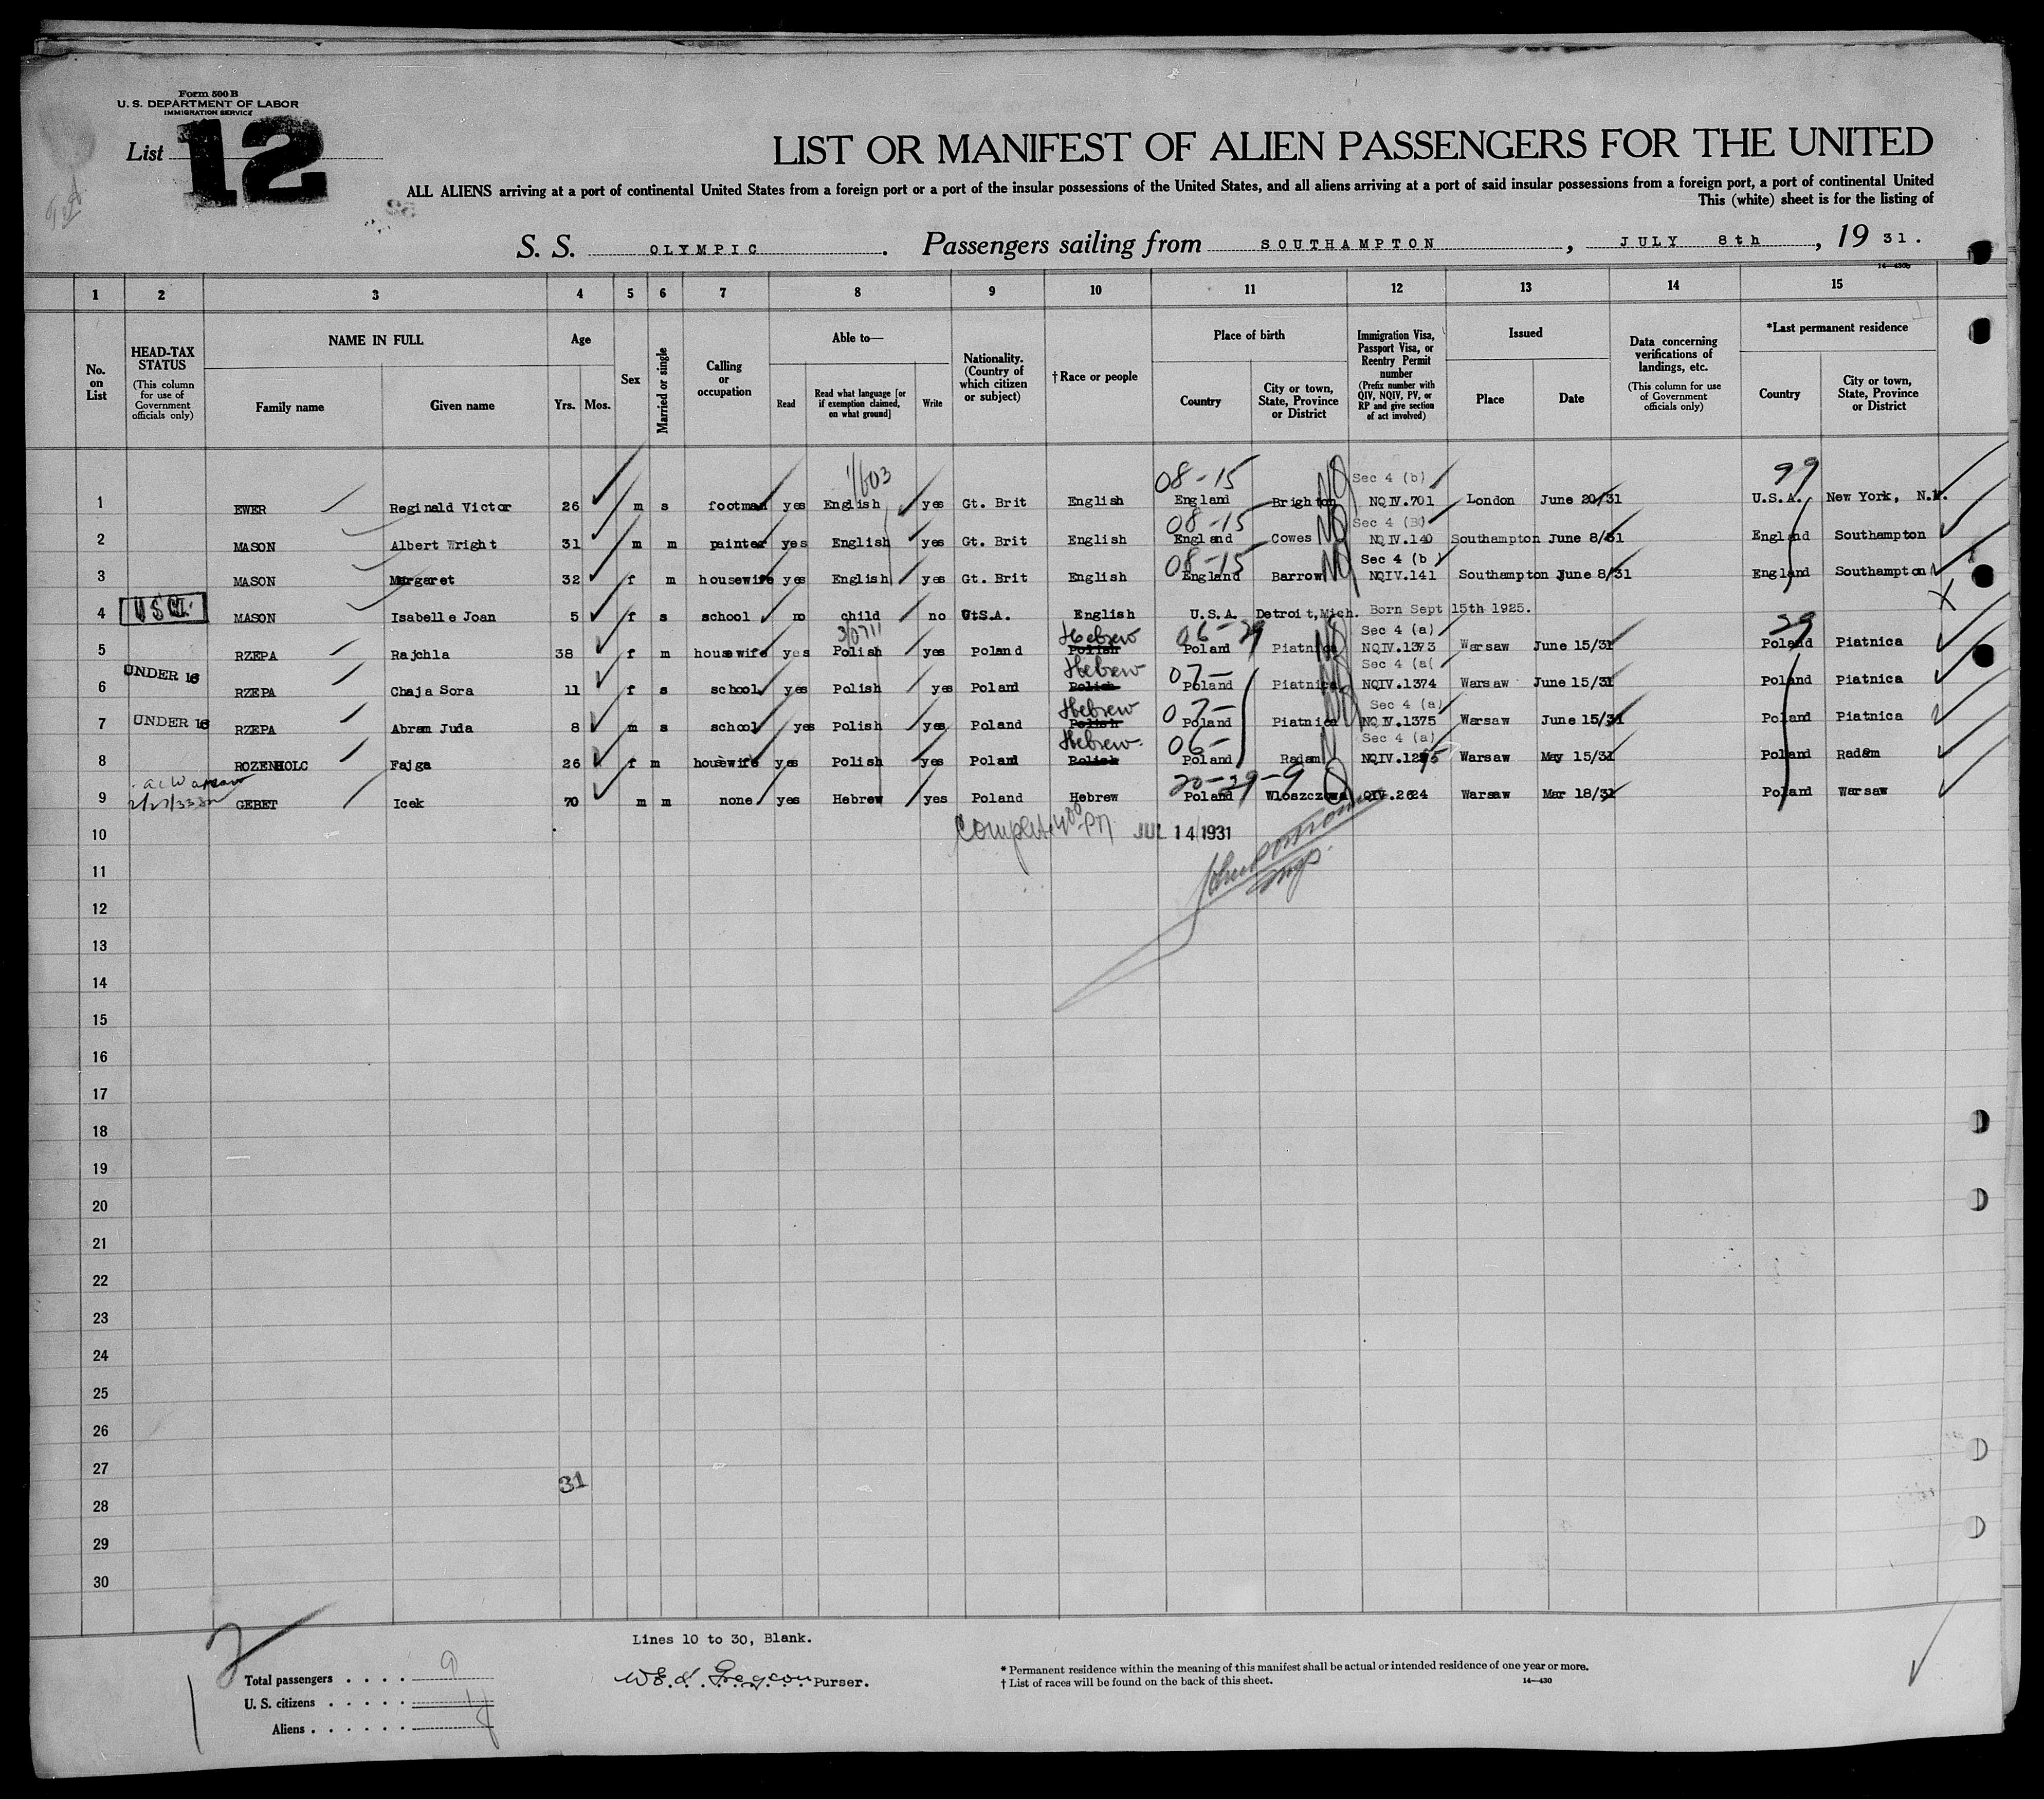 Form 500 B
U. S. DEPARTMENT OF LABOR
IMMIGRATION SERVICE
List 12
LIST OR MANIFEST OF ALIEN PASSENGERS FOR THE UNITED
ALL ALIENS arriving at a port of continental United States from a foreign port or a port of the insular possessions of the United States, and all aliens arriving at a port of said insular possessions from a foreign port, a port of continental United
This (white) sheet is for the listing of
S. S. OLYMPIC. Passengers sailing from SOUTHAMPTON, JULY 8th, 19 31.
14-430b
1 2 3 4 5 6 7 8 9 10 11 12 13 14 15
No. on List
HEAD-TAX STATUS (This column for use of Government officials only)
NAME IN FULL Family name Given name
Age Yrs. Mos.
Sex
Married or single
Calling or occupation
Able to— Read Read what language [or if exemption claimed, on what ground] Write
Nationality. (Country of which citizen or subject)
†Race or people
Place of birth Country City or town, State, Province or District
Immigration Visa, Passport Visa, or Reentry Permit number (Prefix number with QIV, NQIV, PV, or RP and give section of act involved)
Issued Place Date
Data concerning verifications of landings, etc. (This column for use of Government officials only)
*Last permanent residence Country City or town, State, Province or District
1/603 08-15 Sec 4 (b) 99
1 EWER Reginald Victor 26 m s footman yes English yes Gt. Brit English England Brighton NQIV.701 London June 20/31 U.S.A. New York, N.Y.
08-15 Sec 4 (B)
2 MASON Albert Wright 31 m m painter yes English yes Gt. Brit English England Cowes NQIV.140 Southampton June 8/31 England Southampton
08-15 Sec 4 (b)
3 MASON Margaret 32 f m housewife yes English yes Gt. Brit English England Barrow NQIV.141 Southampton June 8/31 England Southampton
4 USC MASON Isabelle Joan 5 f s school no child no U.S.A. English U.S.A. Detroit,Mich. Born Sept 15th 1925. X
3/0711 Hebrew 06-29 Sec 4 (a) 29
5 RZEPA Rajchla 38 f m housewife yes Polish yes Poland Polish Poland Piatnica NQIV.1373 Warsaw June 15/31 Poland Piatnica
UNDER 16 Hebrew 07- Sec 4 (a(
6 RZEPA Chaja Sora 11 f s school yes Polish yes Poland Polish Poland Piatnica NQIV.1374 Warsaw June 15/31 Poland Piatnica
UNDER 16 Hebrew 07- Sec 4 (a)
7 RZEPA Abram Juda 8 m s school yes Polish yes Poland Polish Poland Piatnica NQIV.1375 Warsaw June 15/31 Poland Piatnica
Hebrew. 06- Sec 4 (a)
8 ROZENHOLC Fajga 26 f m housewife yes Polish yes Poland Polish Poland Radam Warsaw May 15/31 Poland Radam
20-29-9
9 GEBET Icek 70 m m none yes Hebrew yes Poland Hebrew Poland Wloszczowa QIV.2624 Warsaw Mar 18/31 Poland Warsaw
10 JUL 14 1931
11
12
13
14
15
16
17
18
19
20
21
22
23
24
25
26
27 31
28
29
30
Lines 10 to 30, Blank.
Total passengers 9
U. S. citizens 1
Aliens 8
Purser.
* Permanent residence within the meaning of this manifest shall be actual or intended residence of one year or more.
† List of races will be found on the back of this sheet.
14-430